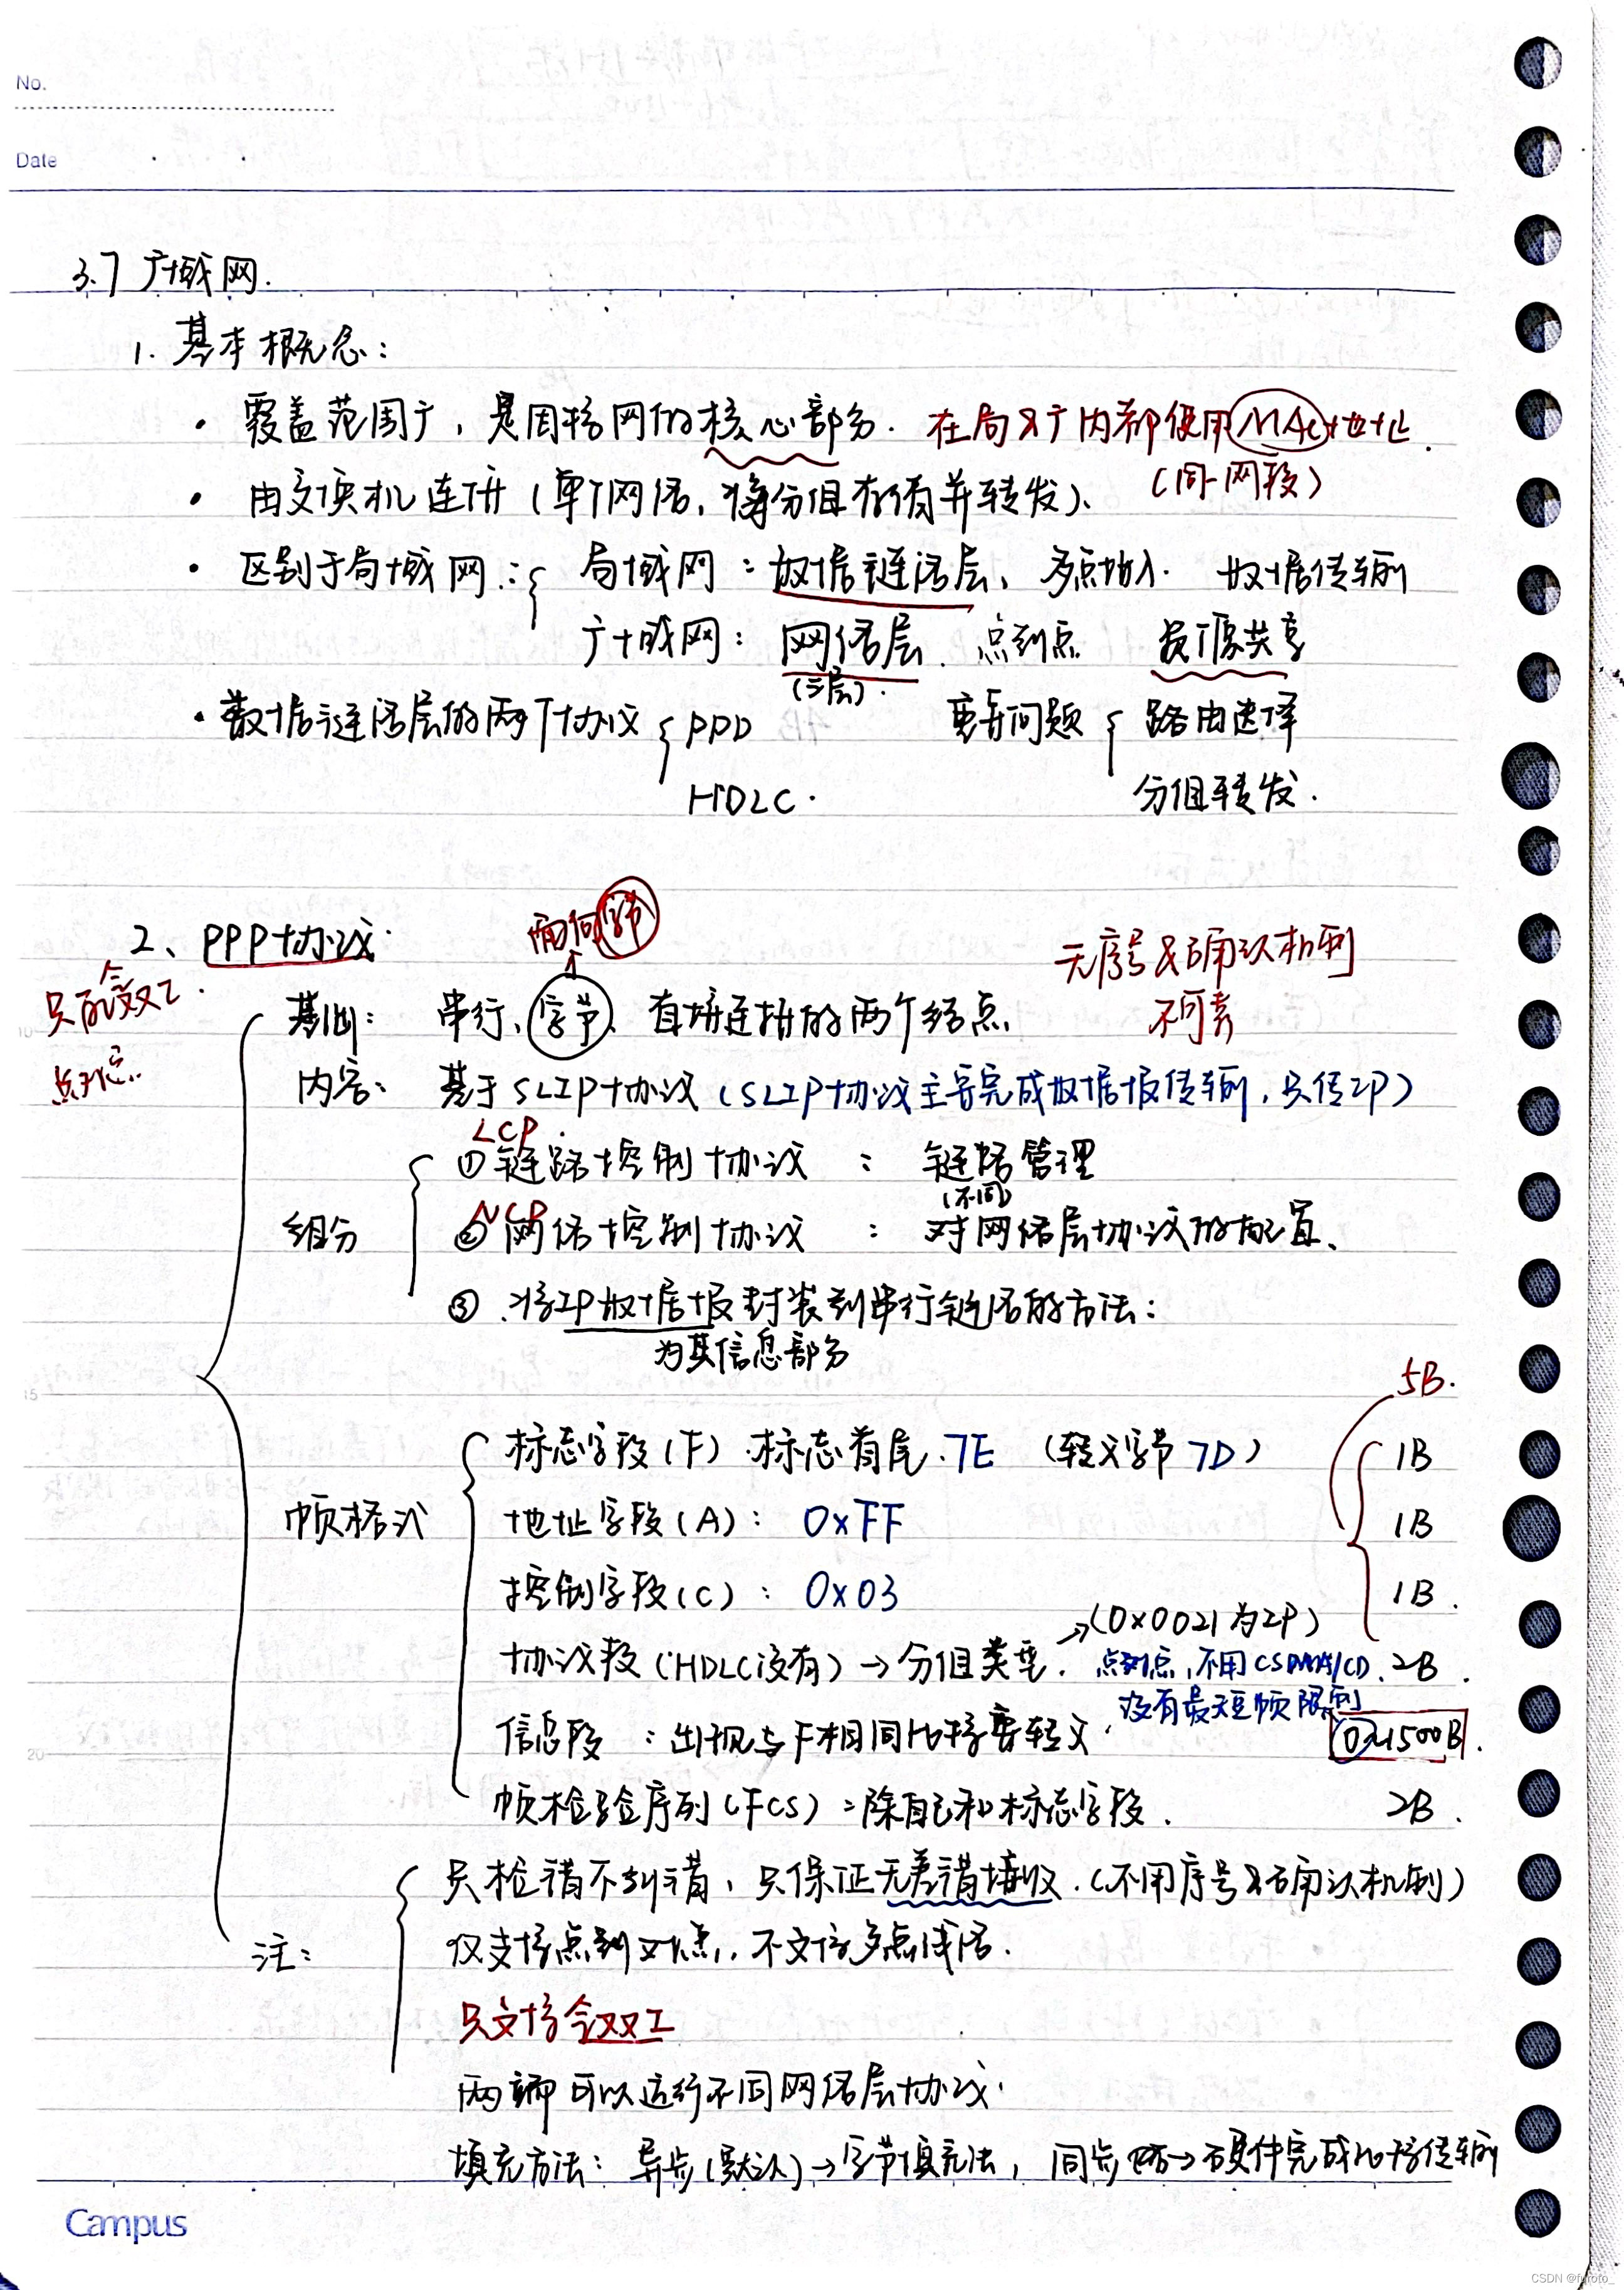 No.
Date
3.7 广域网.
1. 基本概念：
· 覆盖范围广，是因特网的核心部分. 在局又广内都使用MAC地址.
(同一网段)
· 由交换机连接(单个网络，将分组存储并转发)、
· 区别于局域网：{ 局域网：数据链路层、多点接入. 数据传输
广域网：网络层. 点到点 资源共享
(三层).
· 数据链路层的两个协议 { PPP 重要问题 { 路由选择
HDLC. 分组转发.
2、PPP协议.
面向字节
无序号及确认机制
不可靠
只能全双工.
点对点.
基础：串行、字节、直接连接的两个结点
内容：基于SLIP协议(SLIP协议主要完成数据报传输，只传IP)
LCP.
①链路控制协议 ：链路管理
(不同)
NCP
组分 ②网络控制协议 ：对网络层协议的配置、
③.将IP数据报封装到串行链路的方法：
为其信息部分
5B.
标志字段(F).标志首尾.7E (转义字节7D) 1B
帧格式 地址字段(A)：0xFF 1B
控制字段(C)：0x03 1B.
→(0x0021为IP)
协议段(HDLC没有)→分组类型. 点到点,不用CSMA/CD. 2B.
没有最短帧限制
信息段 ：出现与F相同比特要转义. 0~1500B.
帧检验序列(FCS)：除自己和标志字段. 2B.
只检错不纠错，只保证无差错接收.(不用序号及确认机制)
注： 仅支持点到点，不支持多点线路.
只支持全双工
两端可以运行不同网络层协议.
填充方法：异步(默认)→字节填充法，同步→硬件完成比特传输
Campus
CSDN @fufofo_